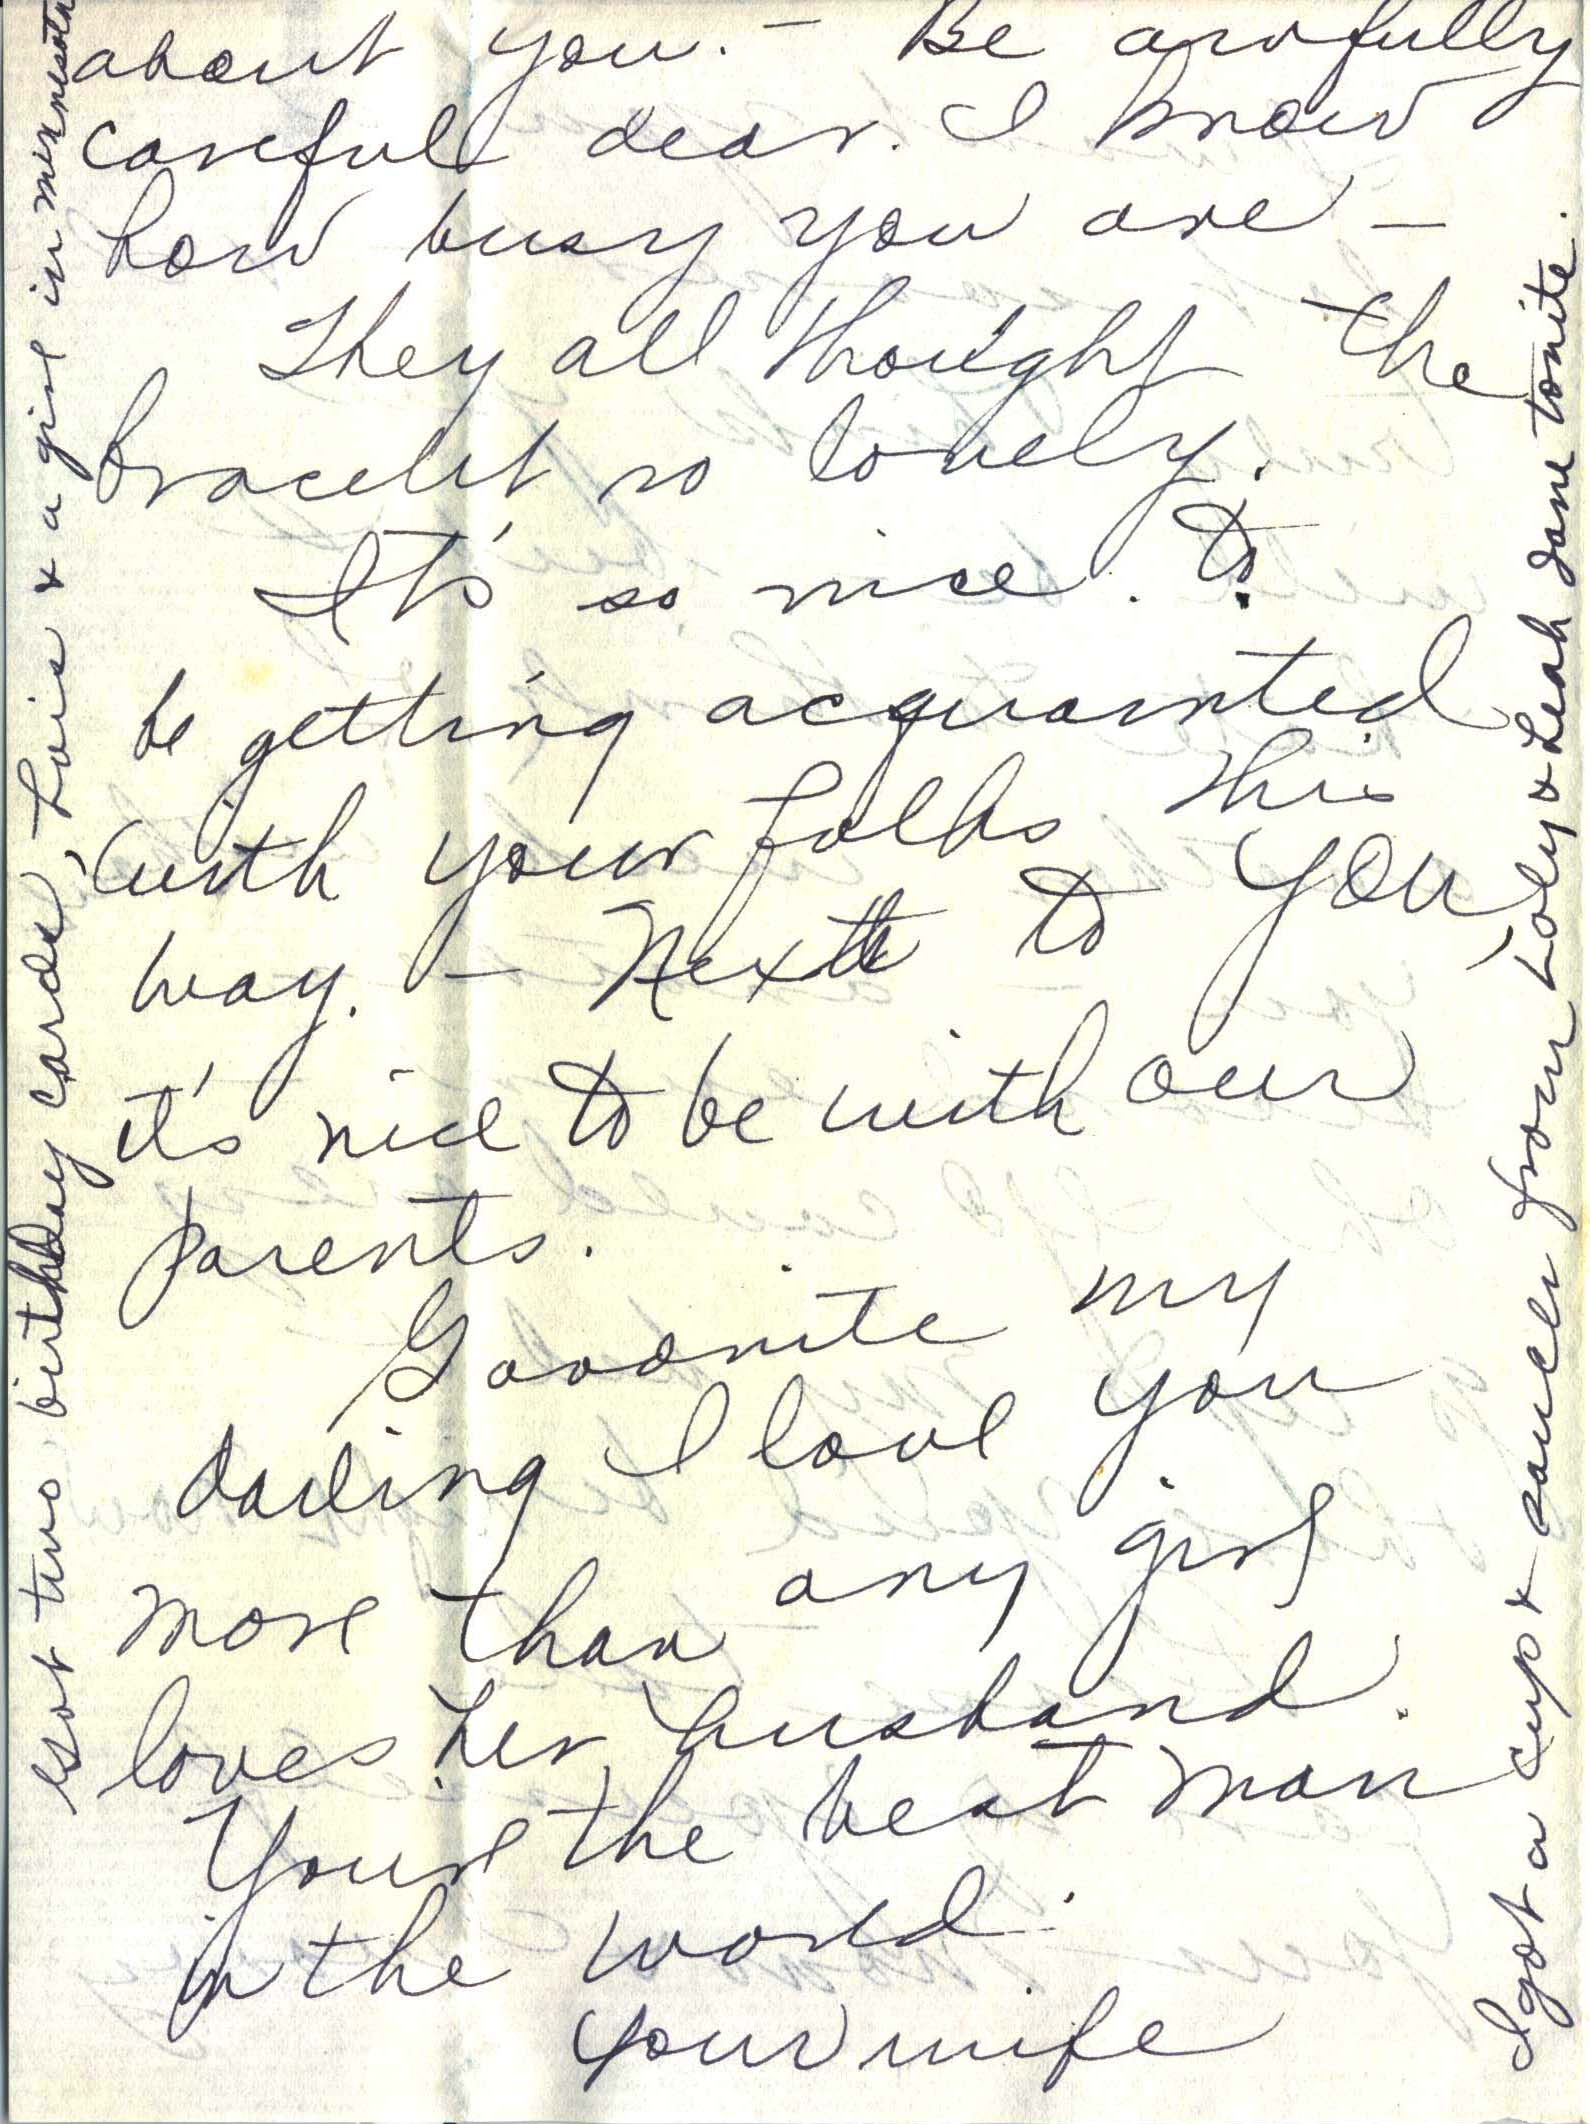 about you. – Be awfully
careful dear. I know
how busy you are –
They all thought the
bracelet so lovely.
It's so nice. to
be getting acquainted
with your folks this
way. – Next to YOU,
it's nice to be with our
parents.
Goodnite my
darling I love you
more than any girl
loves her husband.
Your the best man
in the world.
Your wife
I got a cup & saucer from Loly & Leah Jane tonite.
Got two birthday cards, Lois & a girl in Minnesota